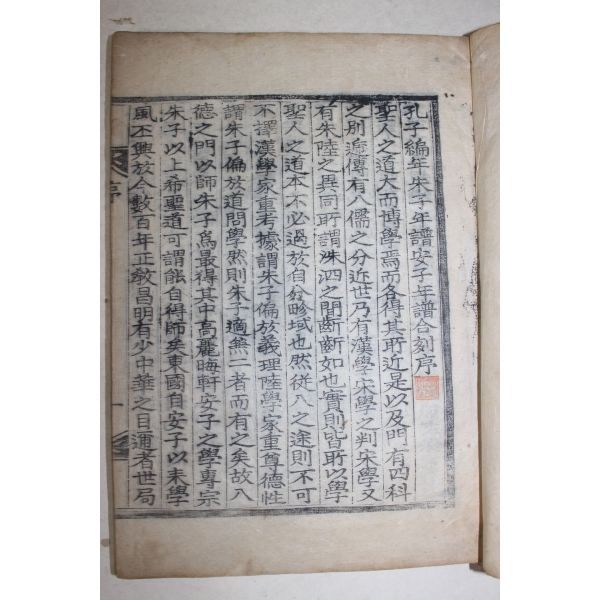 孔子編年朱子年譜安子年譜合刻序
聖人之道大而博學焉而各得其所近是以及門有四科
之別逾傳有八儒之分近世乃有漢學宋學之判宋學又
有朱陸之異同所謂洙泗之閒斷斷如也實則皆所以學
聖人之道本不必過於自分畛域也然從入之途則不可
不擇漢學家重考據謂朱子偏於義理陸學家重尊德性
謂朱子偏於道問學然則朱子適無二者而有之矣故入
德之門以師朱子為最得其中高麗晦軒安子之學專宗
朱子以上希聖道可謂能自得師矣東國自安子以來學
風丕興於今數百年正敎昌明有少中華之目邇者世局
序